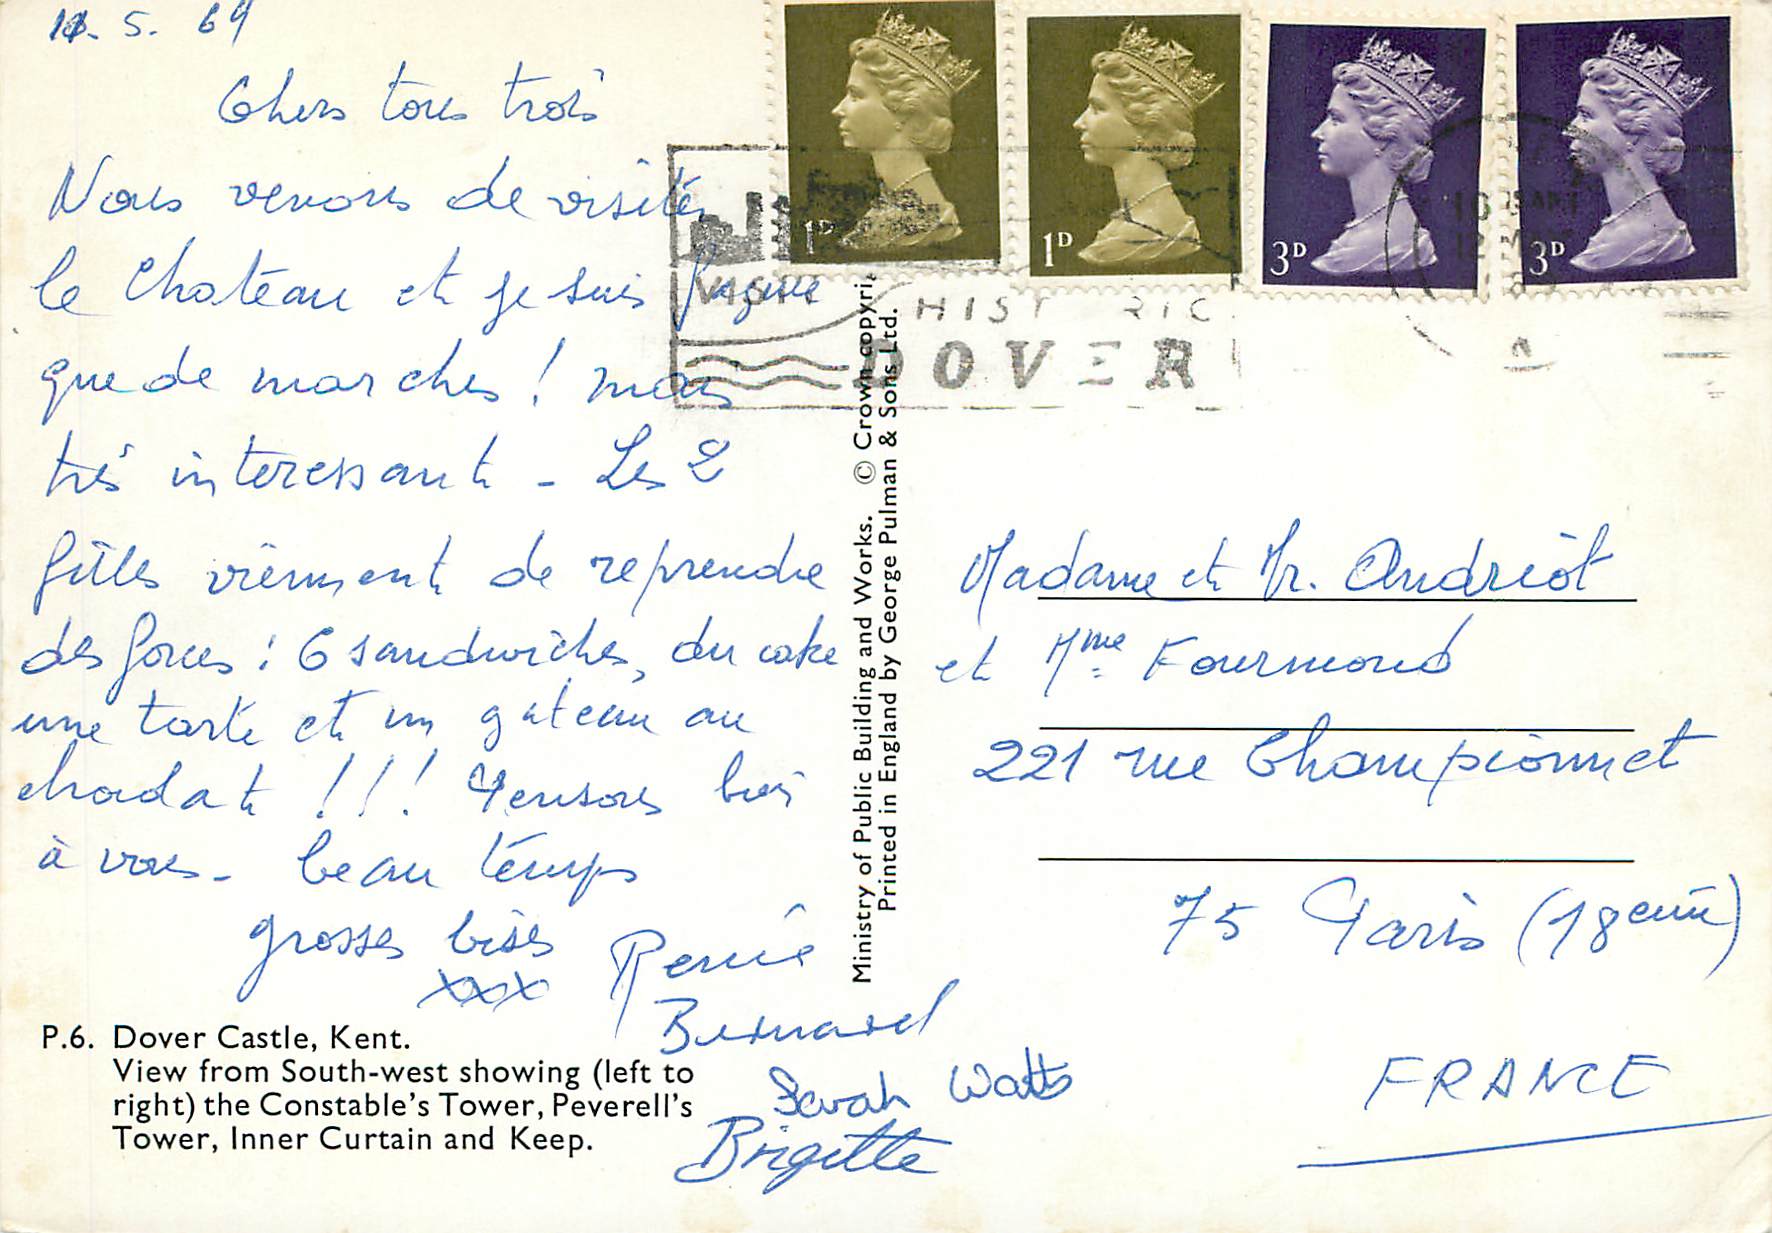 11. 5. 69
Chers tous trois
Nous venons de visiter
le Chateau et je suis fatiguée
que de marches ! mais
très interessant - Les 2
filles viennent de reprendre
des forces : 6 sandwiches, du cake
une tarte et un gateau au
chocolat !!! Pensons bien
à vous - beau temps
grosses bises
xxx
Renée
Bernard
Sarah Watts
Brigitte
P.6. Dover Castle, Kent.
View from South-west showing (left to
right) the Constable's Tower, Peverell's
Tower, Inner Curtain and Keep.
Ministry of Public Building and Works. © Crown copyri
Printed in England by George Pulman & Sons Ltd.
1D
1D
3D
3D
VISIT HISTORIC
DOVER
Madame et Mr. Andriot
et Mme Fourmond
221 rue Championnet
75 Paris (18eme)
FRANCE